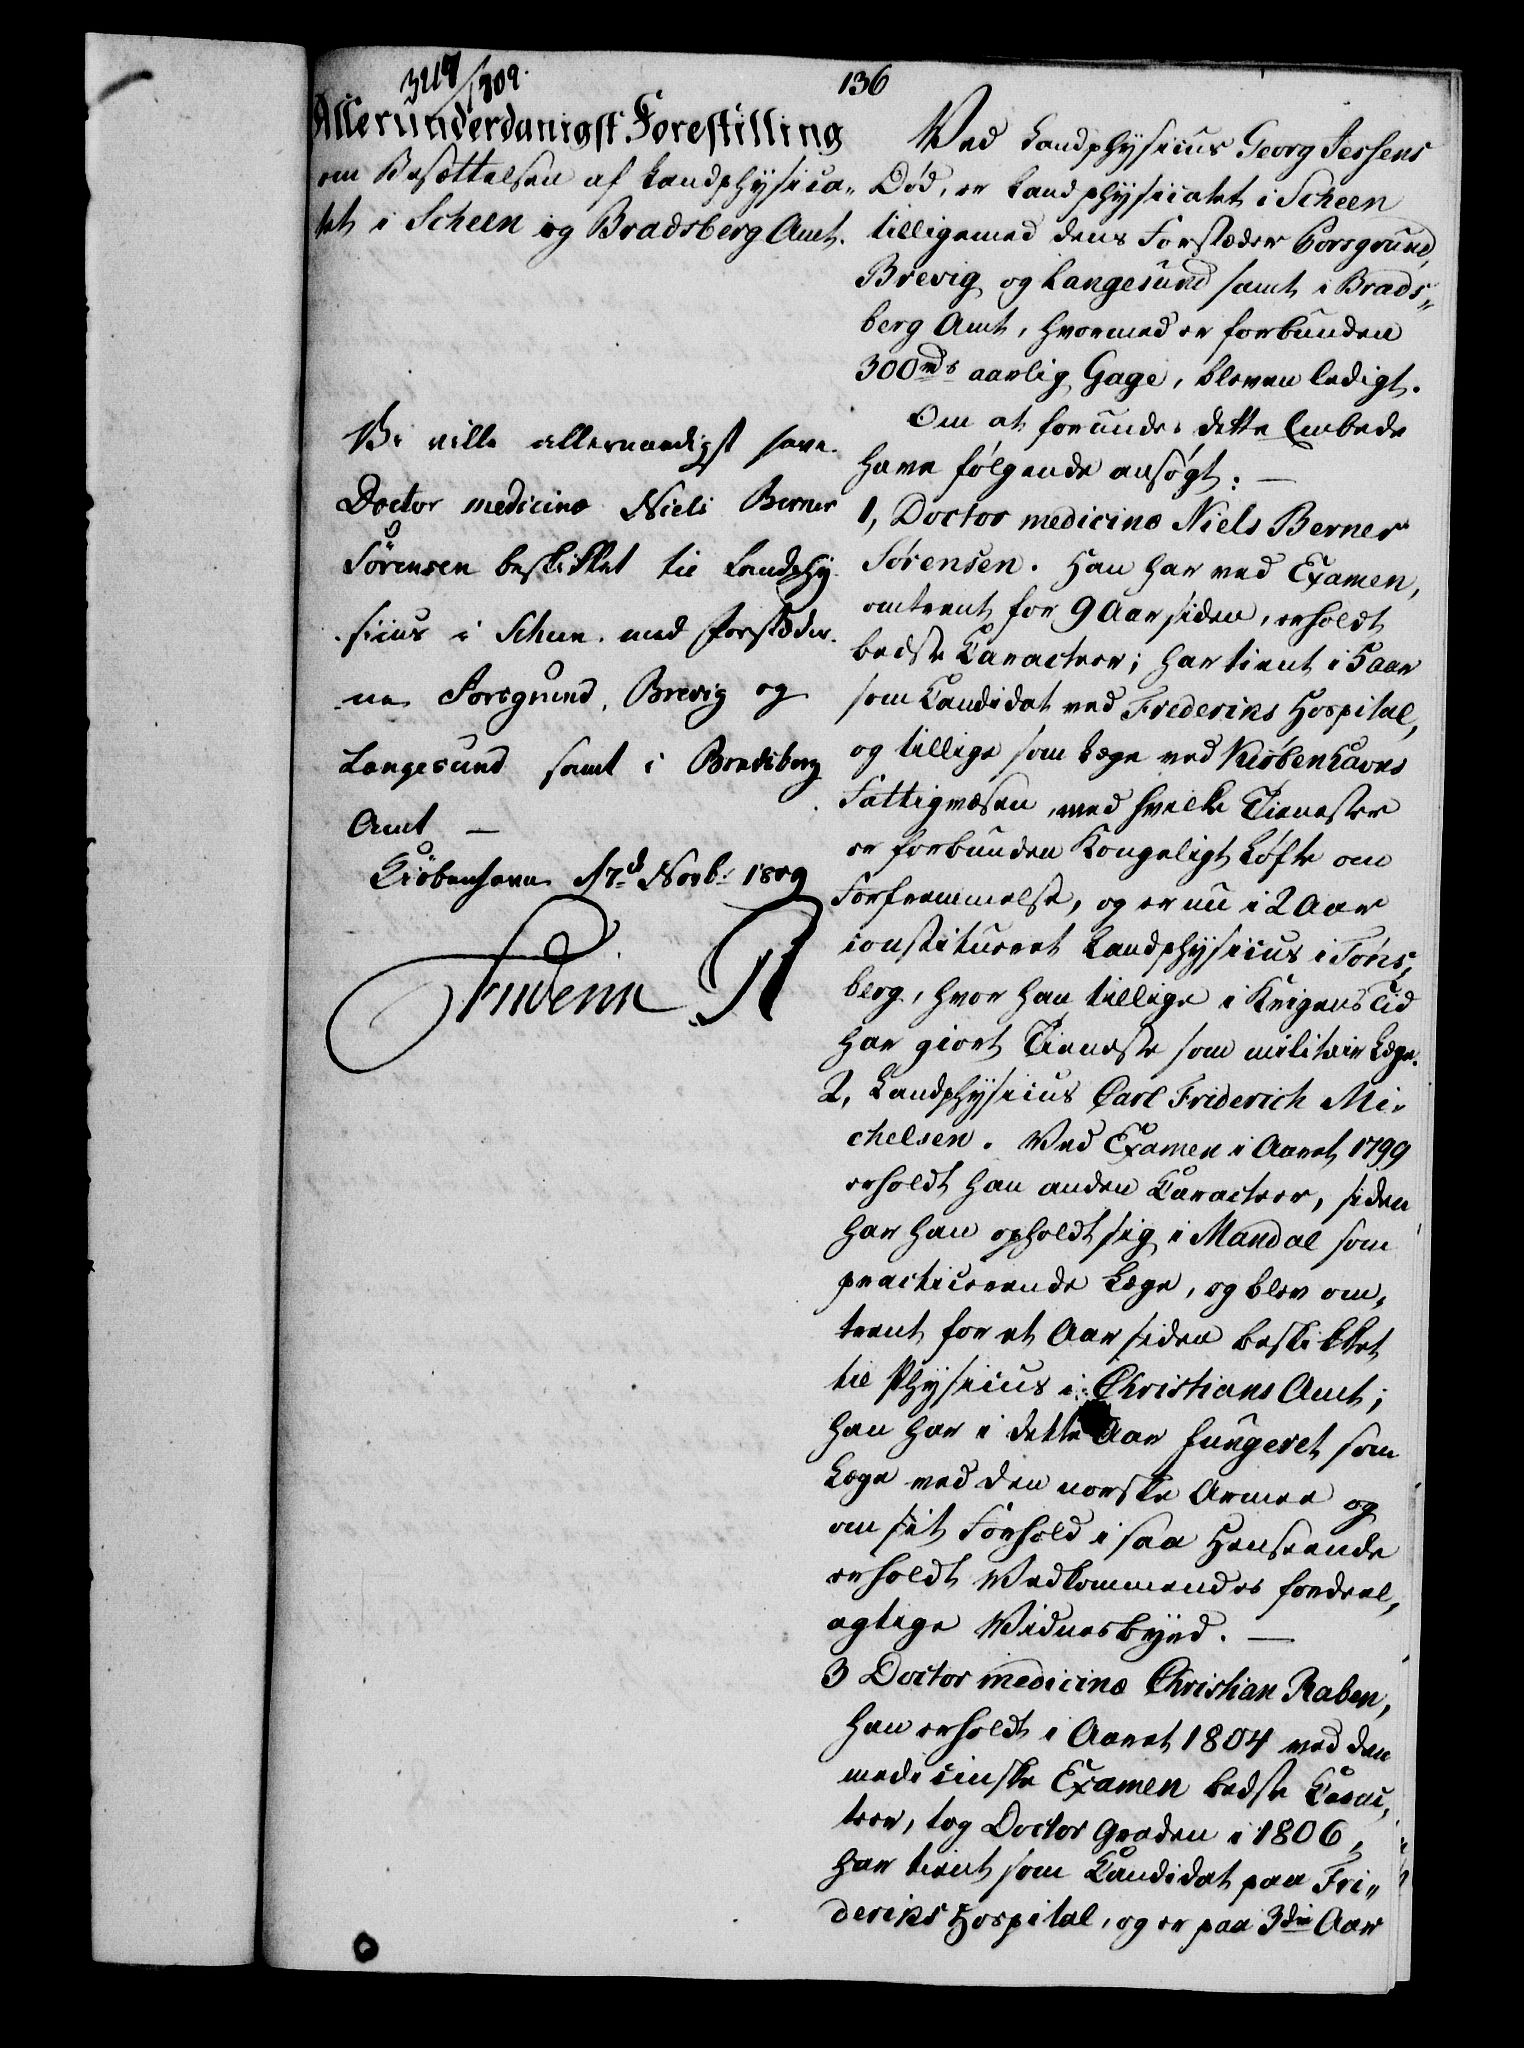 349/809.
136
Allerunderdanigst Forestilling
om Besættelsen af Landphysica-
tet i Scheen og Bradsberg Amt.
Vi ville allernaadigst have
Doctor medicinæ Niels Berner
Sörensen beskikket til Landphy
sicus i Scheen med Forstæder
ne Porsgrund, Brevig og
Langesund samt i Bradsberg
Amt —
Kiöbenhavn d 7d Novbr 1809
Friderich R
Ved Landphysicus Georg Jessens
Død, er Landphysicatet i Scheen
tilligemed dens Forstæder Porsgrund,
Brevig og Langesund samt i Brads-
berg Amt, hvormed er forbunden
300 rd aarlig Gage, bleven ledigt.
Om at forundes dette Embede
have følgende ansøgt: —
1, Doctor medicinæ Niels Berner
Sørensen. Han har ved Examen,
omtrent for 9 Aar siden, erholdt
bedste Caracteer; har tient i 5 aar
som Candidat ved Frederiks Hospital,
og tillige som Læge ved Kiøbenhavns
Fattigvæsen, med hvilke Tienester
er forbunden Kongeligt Løfte om
Forfremmelse, og er nu i 2 Aar
constitueret Landphysicus i Töns-
berg, hvor han tillige i Krigens Tid
har giort Tieneste som militair Læge.
2, Landphysicus Carl Friderich Mi-
chelsen. Ved Examen i Aaret 1799
erholdt han anden Caracteer, siden
har han opholdt sig i Mandal som
practicerende Læge, og blev om-
trent for et Aar siden beskikket
til Physicus i Christians Amt;
han har i dette Aar fungeret som
Læge ved den norske Armee og
om sit Forhold i saa Henseende
erholdt Vedkommendes fordeel-
agtige Vidnesbyrd. —
3 Doctor medicinæ Christian Raben,
han erholdt i Aaret 1804 ved den
medicinske Examen bedste Carac-
teer, tog Doctor Graden i 1806,
har tient som Candidat paa Fri-
deriks Hospital, og er paa 3die Aar